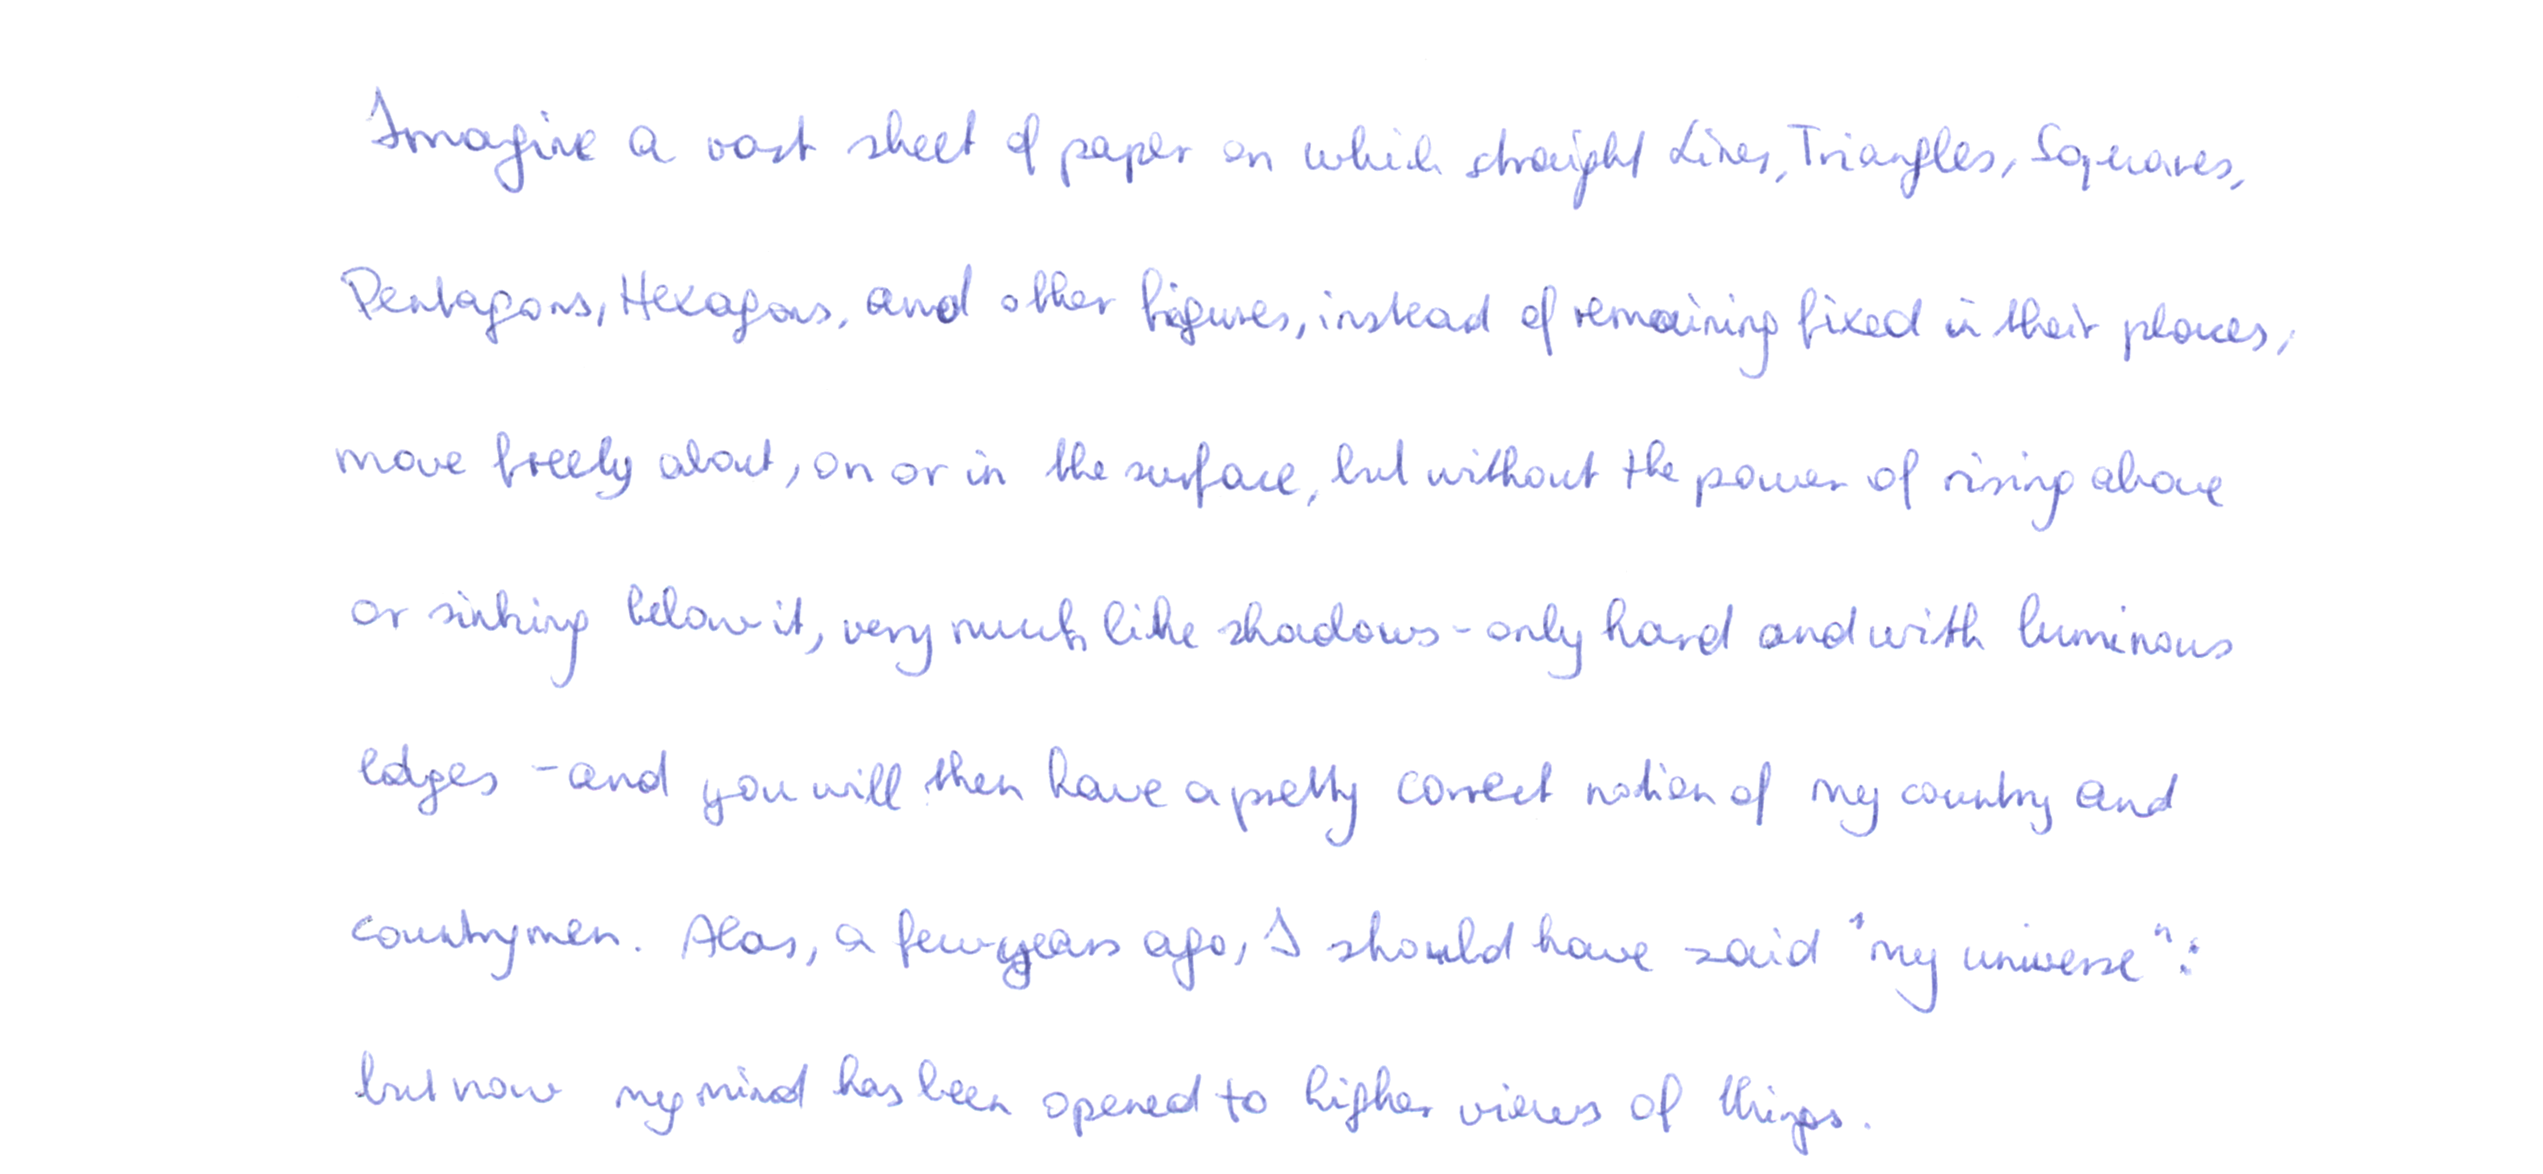 Imagine a vast sheet of paper on which straight Lines, Triangles, Squares,
Pentagons, Hexagons, and other figures, instead of remaining fixed in their places,
move freely about, on or in the surface, but without the power of rising above
or sinking below it, very much like shadows - only hard and with luminous
edges - and you will then have a pretty correct notion of my country and
countrymen. Alas, a few years ago, I should have said "my universe":
but now my mind has been opened to higher views of things.